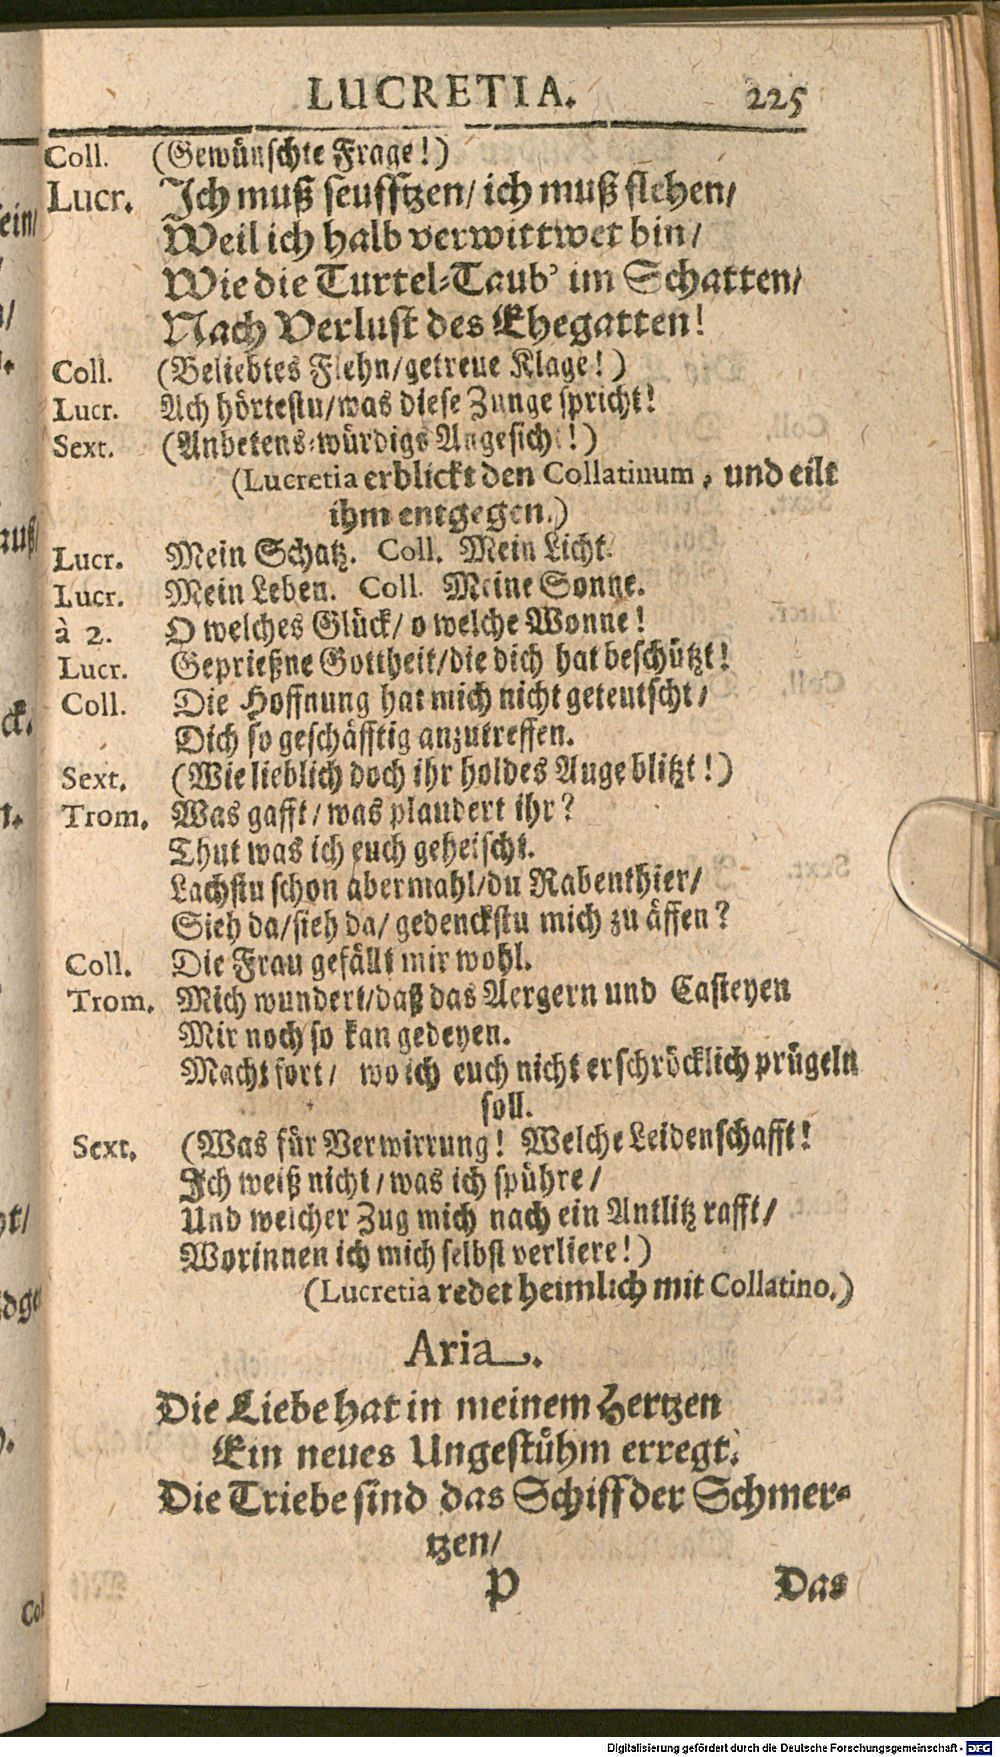 LUCRETIA. 225
Coll. (Gewünschte Frage!)
Lucr. Ich muß seufftzen/ ich muß flehen/
Weil ich halb verwittwet bin/
Wie die Turtel-Taub' im Schatten/
Nach Verlust des Ehegatten!
Coll. (Beliebtes Flehn/getreue Klage!)
Lucr. Ach hörtestu/was diese Zunge spricht!
Sext. (Anbetens-würdigs Angesicht!)
(Lucretia erblickt den Collatinum, und eilt
ihm entgegen.)
Lucr. Mein Schatz. Coll. Mein Licht.
Lucr. Mein Leben. Coll. Meine Sonne.
à 2. O welches Glück/ o welche Wonne!
Lucr. Geprießne Gottheit/die dich hat beschützt!
Coll. Die Hoffnung hat mich nicht geteutscht/
Dich so geschäfftig anzutreffen.
Sext. (Wie lieblich doch ihr holdes Auge blitzt!)
Trom. Was gafft/ was plaudert ihr?
Thut was ich euch geheischt.
Lachstu schon abermahl/du Rabenthier/
Sieh da/sieh da/ gedenckstu mich zu äffen?
Coll. Die Frau gefällt mir wohl.
Trom. Mich wundert/daß das Aergern und Casteyen
Mir noch so kan gedeyen.
Macht fort/ wo ich euch nicht erschröcklich prügeln
soll.
Sext. (Was für Verwirrung! Welche Leidenschafft!
Ich weiß nicht/was ich spühre/
Und welcher Zug mich nach ein Antlitz rafft/
Worinnen ich mich selbst verliere!)
(Lucretia redet heimlich mit Collatino.)
Aria.
Die Liebe hat in meinem Hertzen
Ein neues Ungestühm erregt.
Die Triebe sind das Schiff der Schmer-
tzen/
P Das
Digitalisierung gefördert durch die Deutsche Forschungsgemeinschaft - DFG